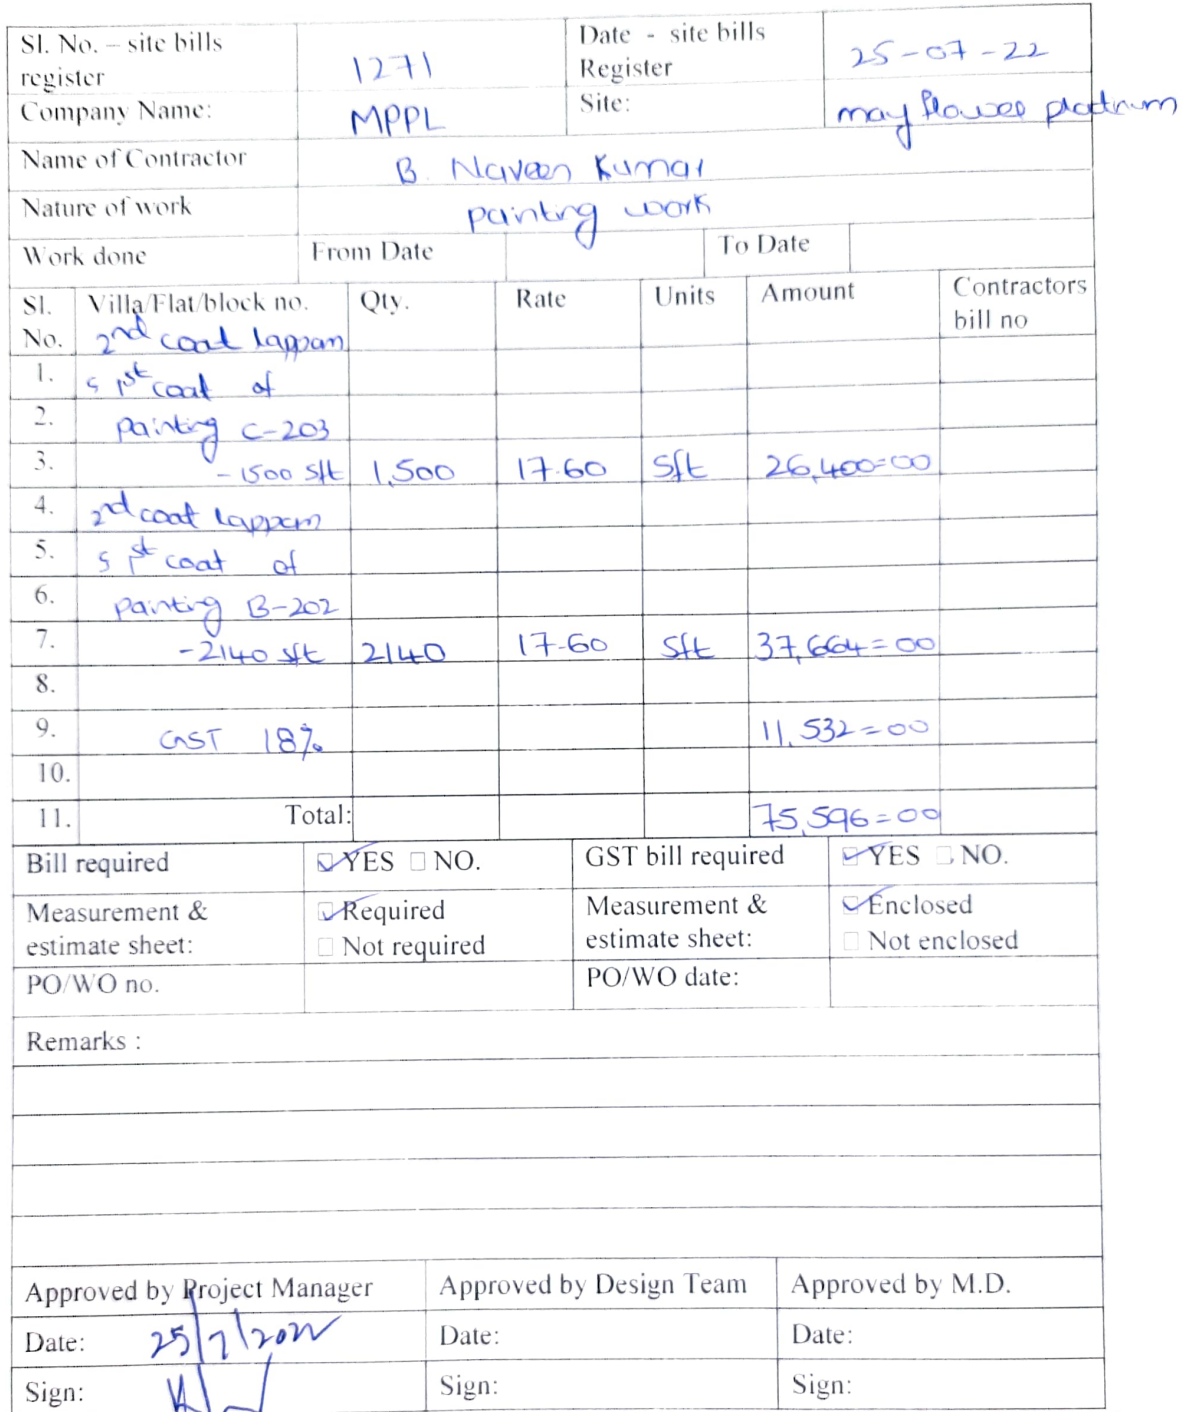 Sl. No. – site bills register 1271 Date - site bills Register 25-07-22
Company Name: MPPL Site: mayflower platinum
Name of Contractor B. Naveen Kumar
Nature of work painting work
Work done From Date To Date
Sl. No. Villa/Flat/block no. Qty. Rate Units Amount Contractors bill no
2nd coat lappam
1. & 1st coat of
2. painting C-203
3. -1500 sft 1,500 17.60 sft 26,400=00
4. 2nd coat lappam
5. & 1st coat of
6. painting B-202
7. -2140 sft 2140 17-60 sft 37,664=00
8.
9. GST 18% 11,532=00
10.
11. Total: 75,596=00
Bill required YES NO. GST bill required YES NO.
Measurement & estimate sheet: Required Not required Measurement & estimate sheet: Enclosed Not enclosed
PO/WO no. PO/WO date:
Remarks :
Approved by Project Manager Approved by Design Team Approved by M.D.
Date: 25/7/2022 Date: Date:
Sign: Sign: Sign: